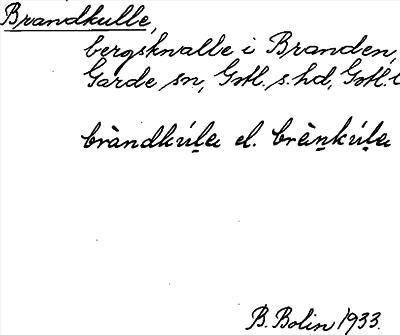 Brandkulle,
bergsknalle i Branden,
Garde sn, Gotl. s. hd, Gotl. l
bràndkúla el. brànkúla
B. Bolin 1933.